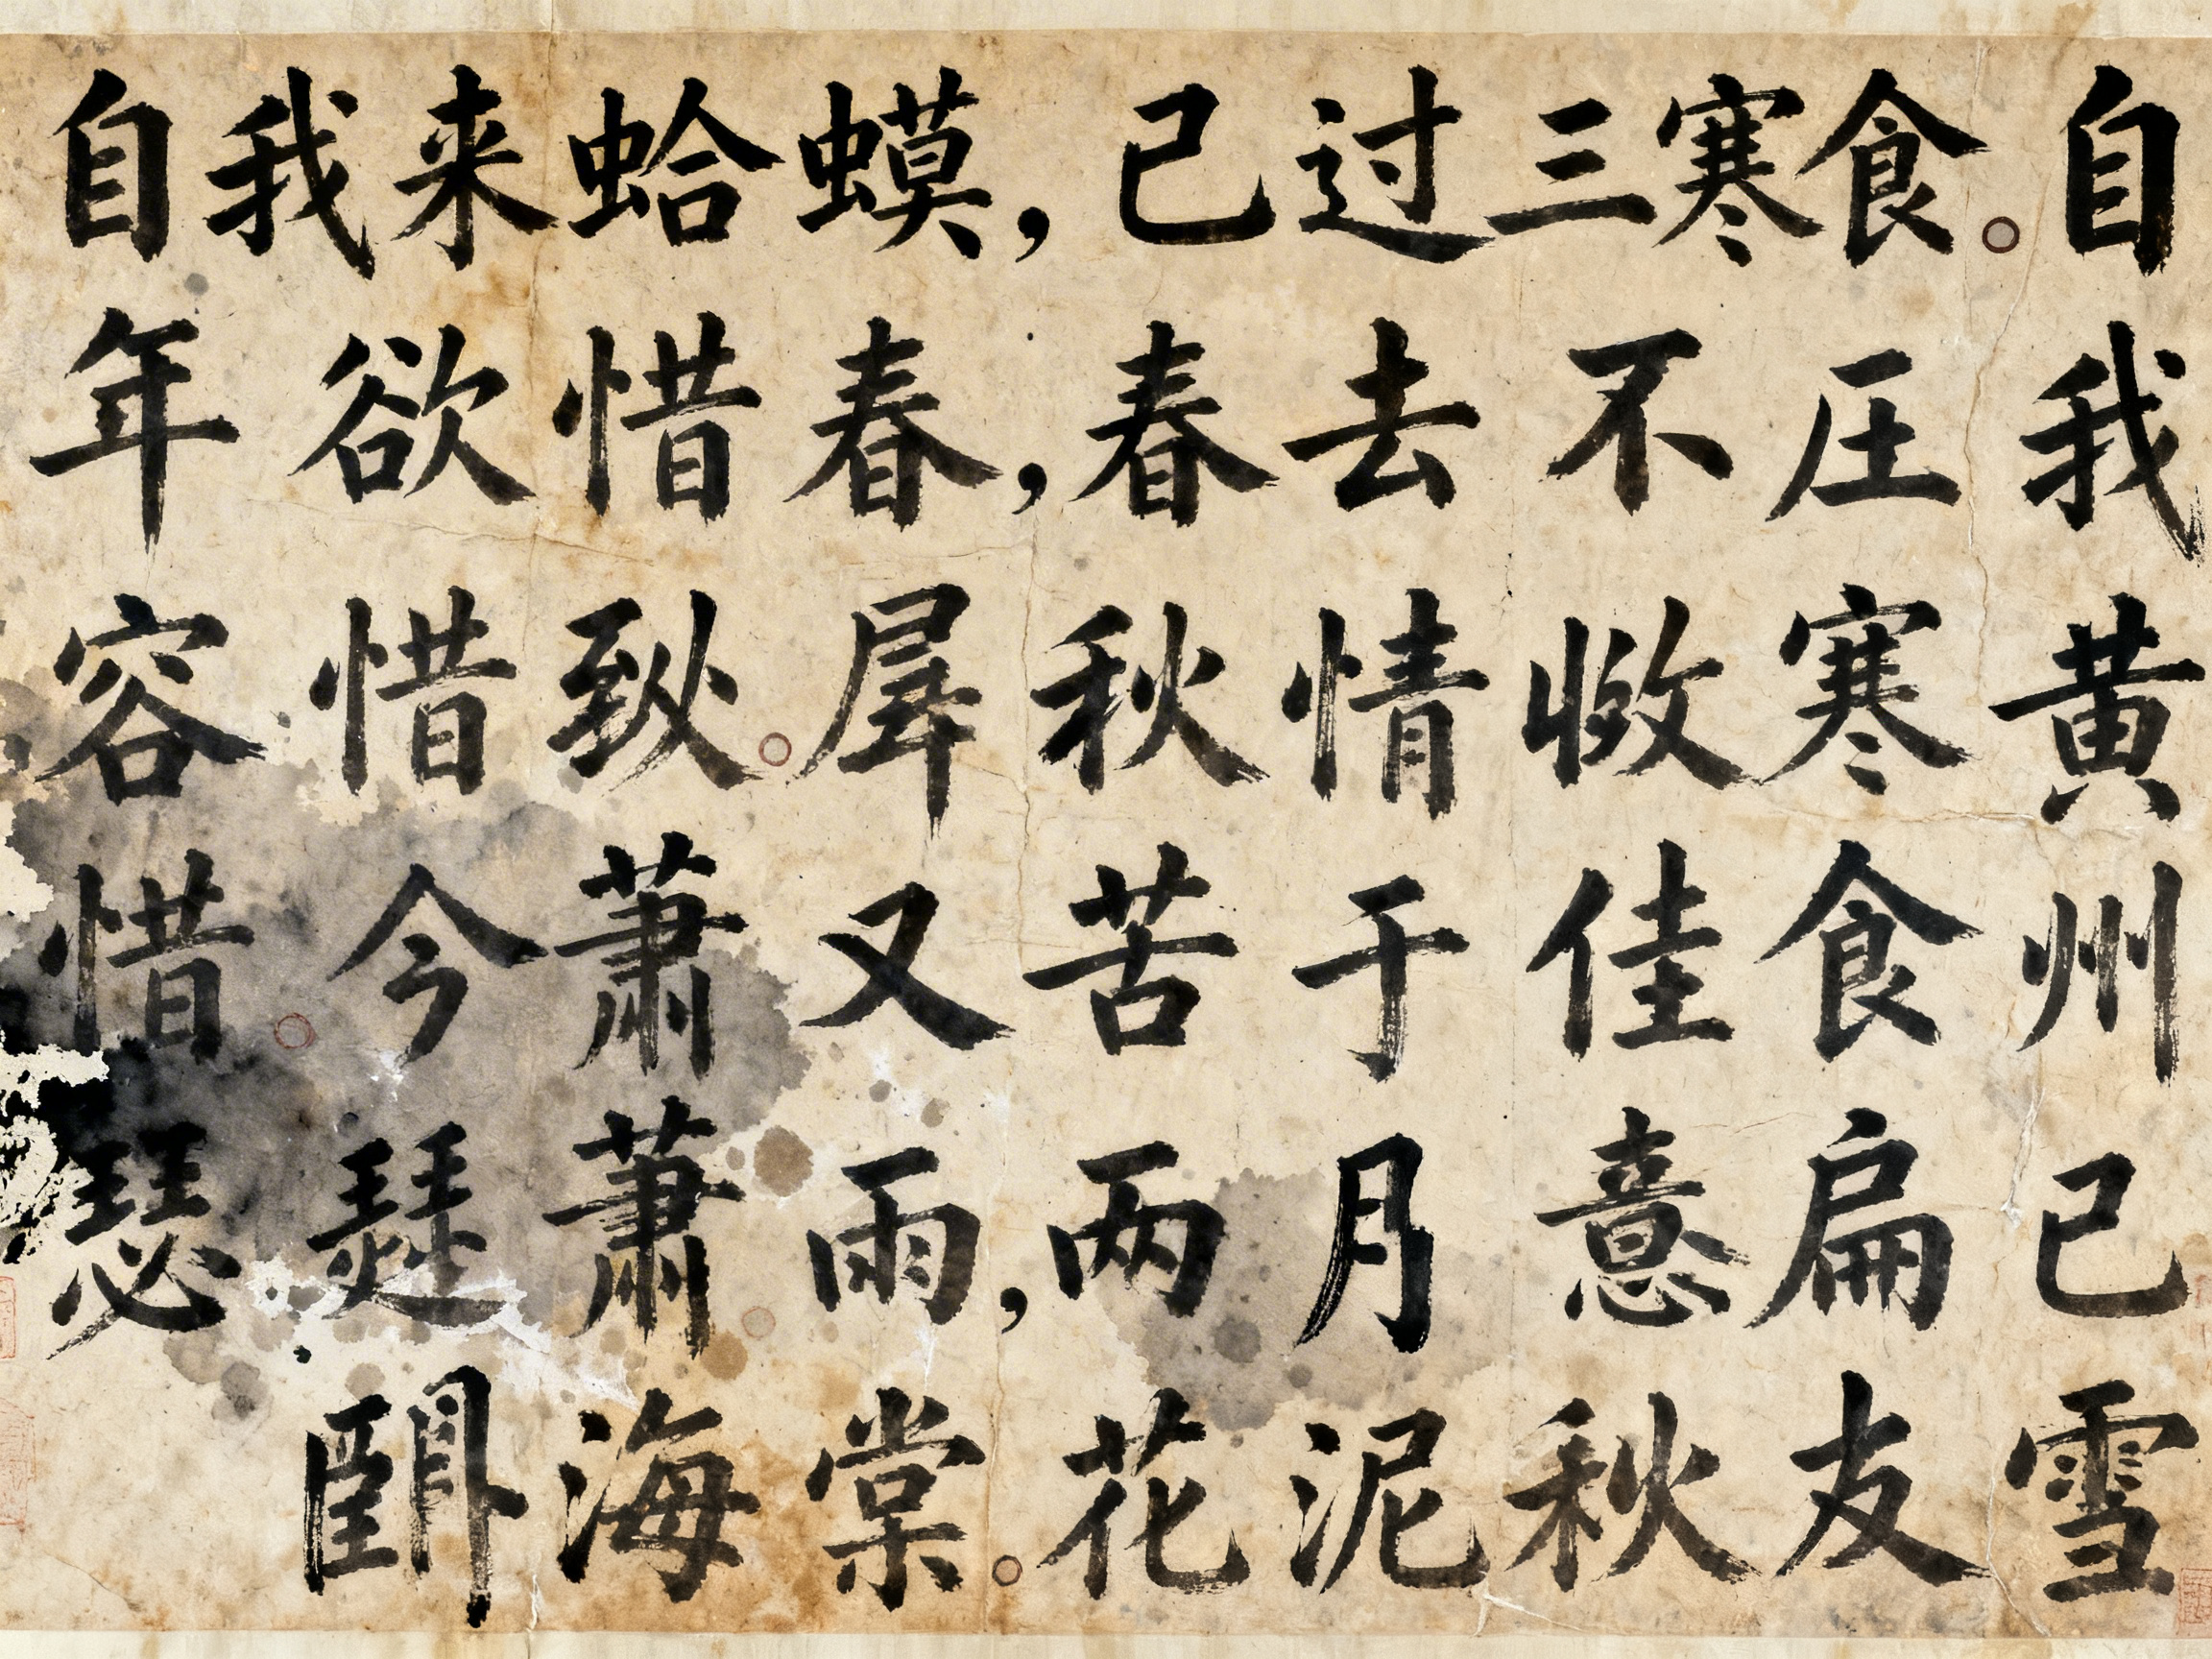 自我来蛤蟆，已过三寒食。自
年欲惜春，春去不圧我
容惜。秋情寒黄
惜。今蕭又苦于佳食州
瑟蕭。雨，两月意扁已
海棠。花泥秋友雪